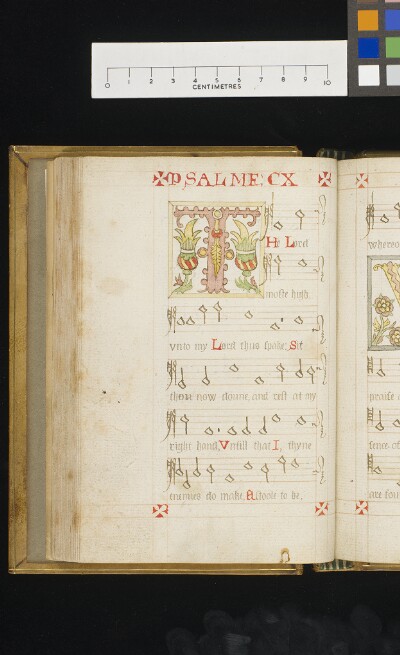 0 1 2 3 4 5 6 7 8 9 10
CENTIMETRES
PSALME: CX
THe Lord
moste high.
vnto my Lord thus spake, Sit
thou now doune, and rest at my
right hand, Vntill that I, thyne
enimies do make, A stoole to be,
whereo
praise
sence of
are foun